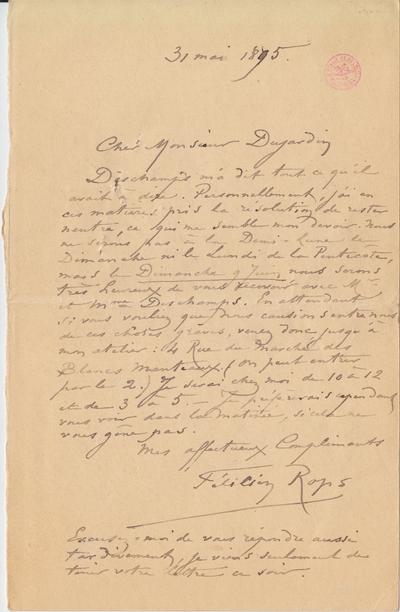 31 mai 1895.
Cher Monsieur Dujardin
Deschamps m'a dit tout ce qu'il
avait à dire. Personnellement, j'ai en
ces matières pris la résolution de rester
neutre, ce qui me semble mon devoir. Nous
ne serons pas à la Demi-Lune le
Dimanche ni le Lundi de la Pentecôte,
mais le Dimanche 9 Juin, nous serons
très heureux de vous recevoir avec Mr
et Mme Deschamps. En attendant
si vous vouliez que nous causions entre nous
de ces choses graves, venez donc jusqu'à
mon atelier: 4 Rue du Marché des
Blancs Manteaux. (on peut entrer
par le 2.) Je serai chez moi de 10 à 12
et de 3 à 5. — Je préférerais cependant
vous voir dans la matinée, si cela ne
vous gêne pas.
Mes affectueux Compliments
Félicien Rops
Excusez-moi de vous répondre aussi
tardivement, je viens seulement de
votre lettre ce soir.